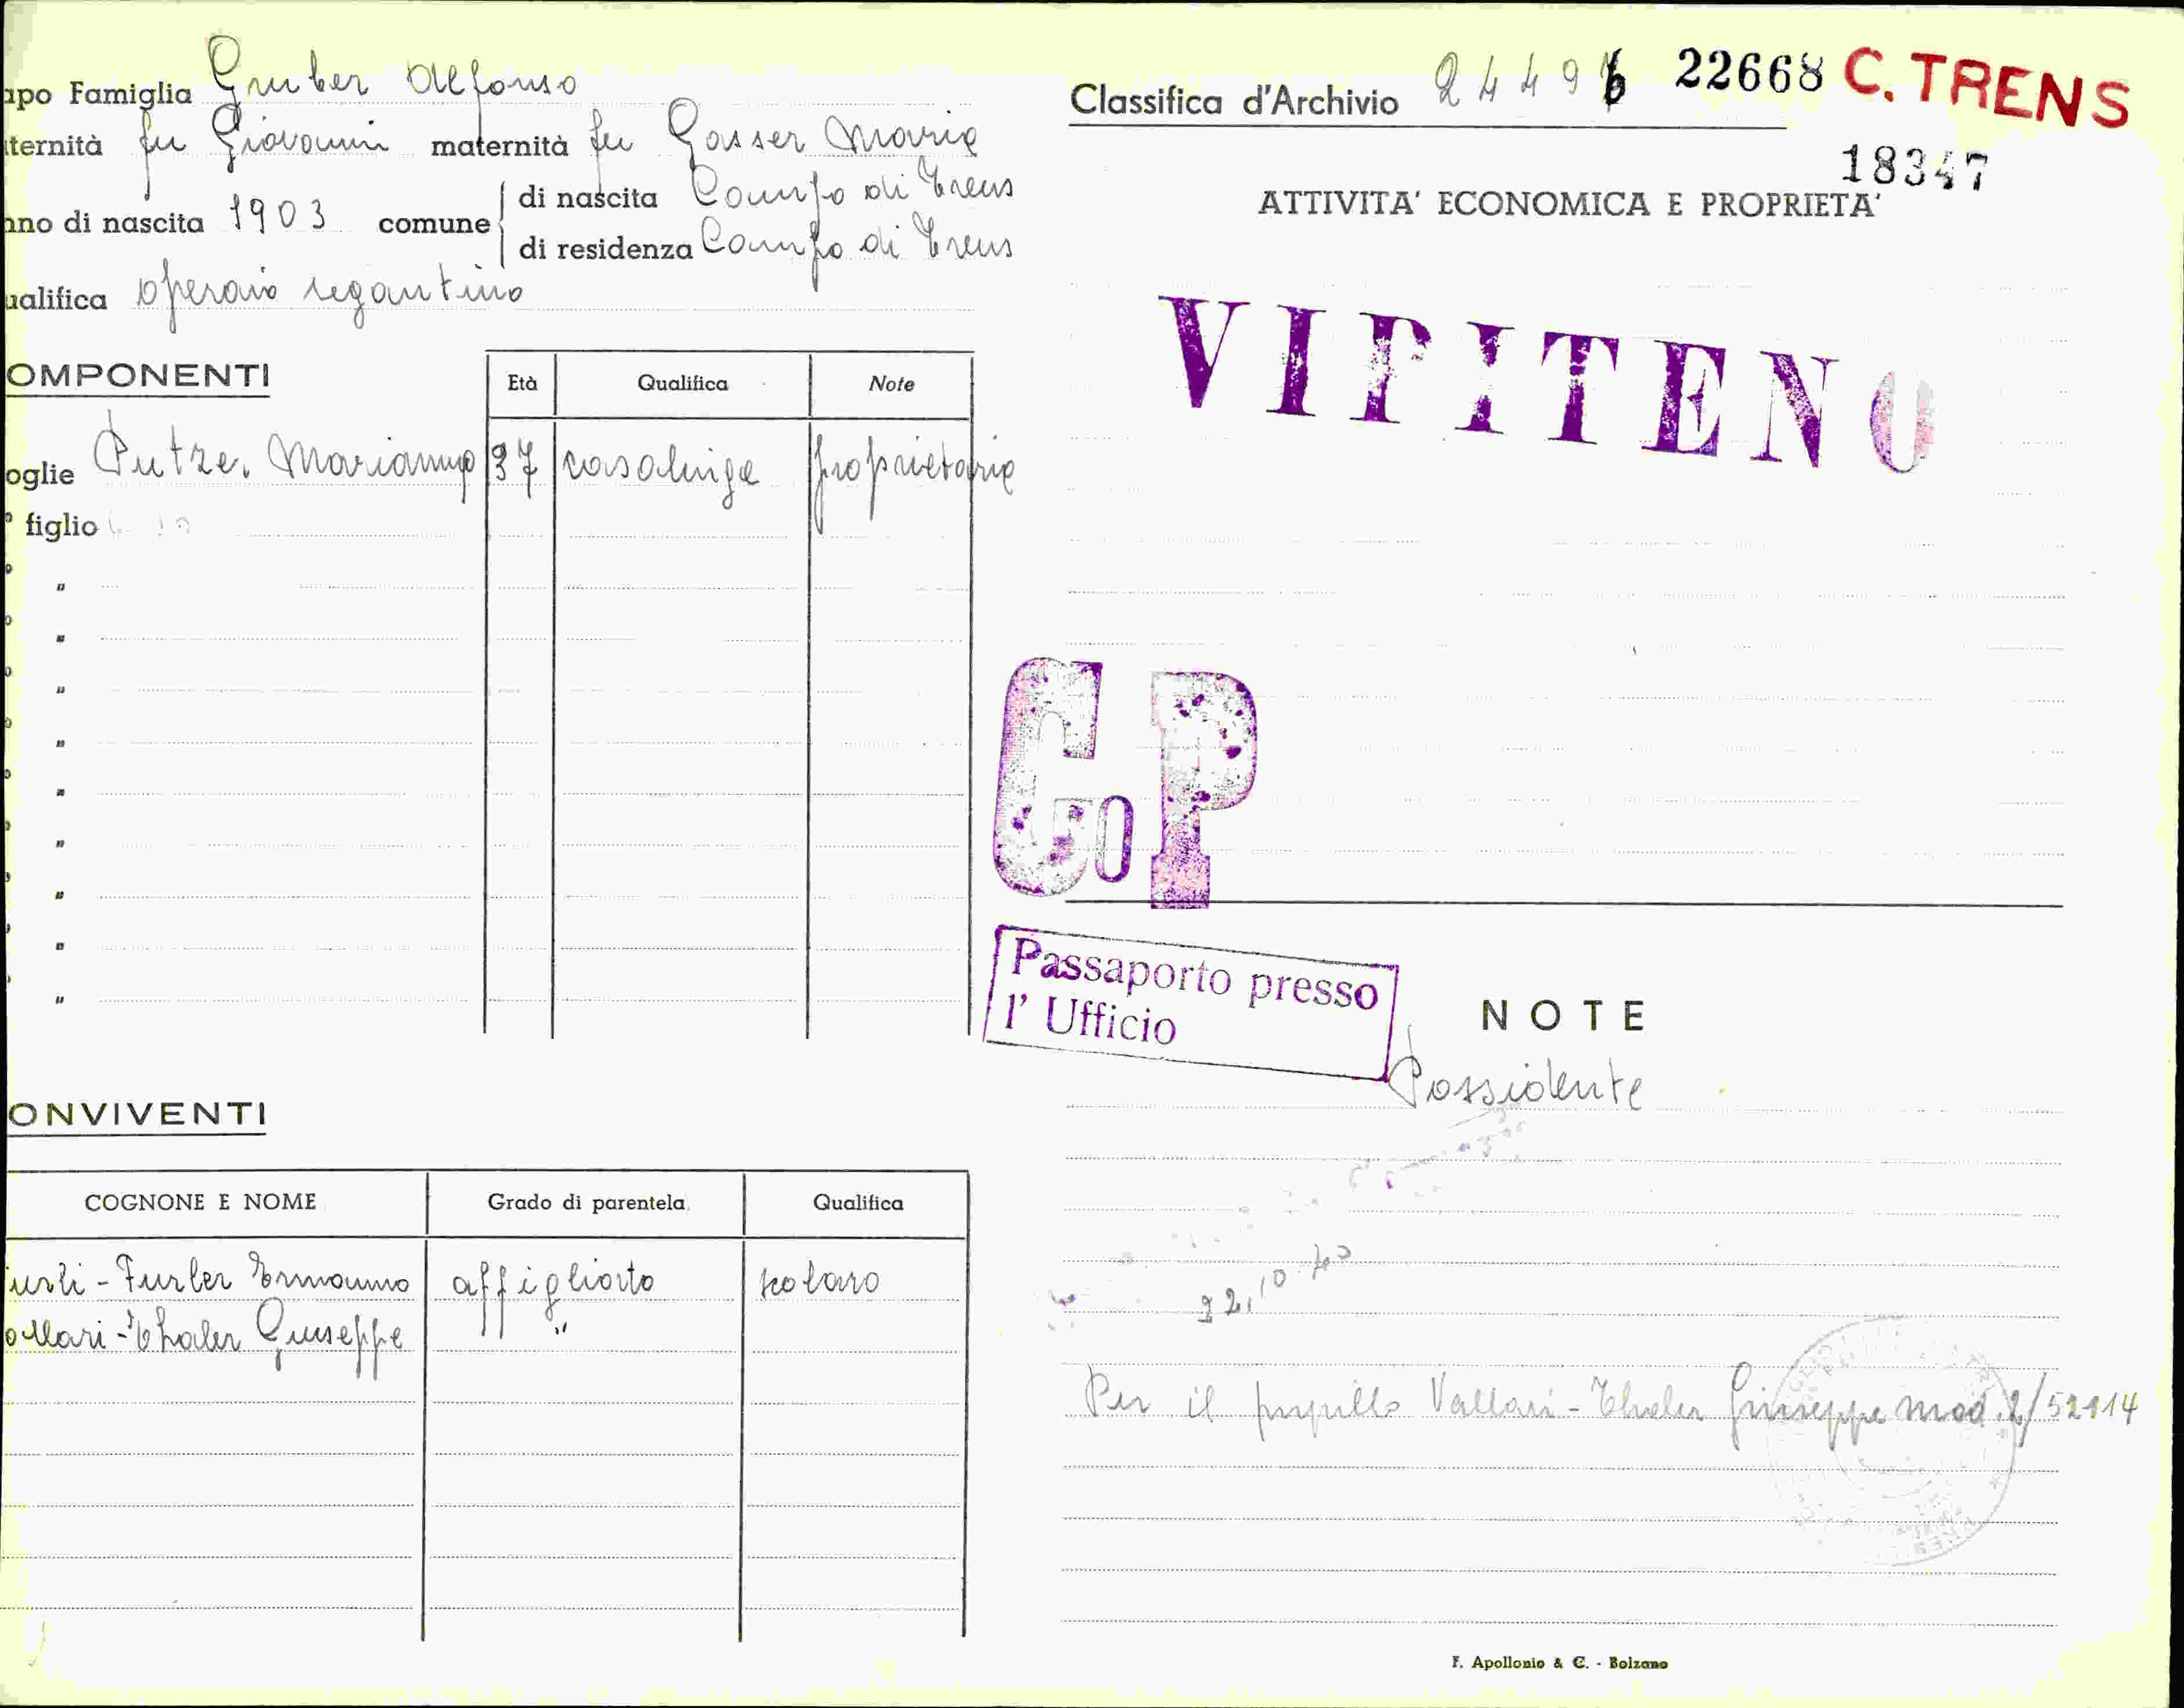 apo Famiglia Gruber Alfonso
ternità fu Giovanni maternità fu Gasser Maria
nno di nascita 1903 comune di nascita Campo di Trens
di residenza Campo di Trens
ualifica operaio segantino
OMPONENTI Età Qualifica Note
oglie Putzer Marianna 37 casalinga proprietaria
° figlio
"
"
"
"
"
"
"
"
"
ONVIVENTI
COGNONE E NOME Grado di parentela Qualifica
urli - Furler Ermanno affigliato scolaro
ollari - Thaler Giuseppe "
Classifica d'Archivio 24496 22668 C. TRENS
18347
ATTIVITA' ECONOMICA E PROPRIETA'
VIPITENO
Co P
Passaporto presso
l' Ufficio
NOTE
Possidente
22.10.40
Per il pupillo Vallari - Thaler Giuseppe mod. 2/52114
F. Apollonio & C. - Bolzano